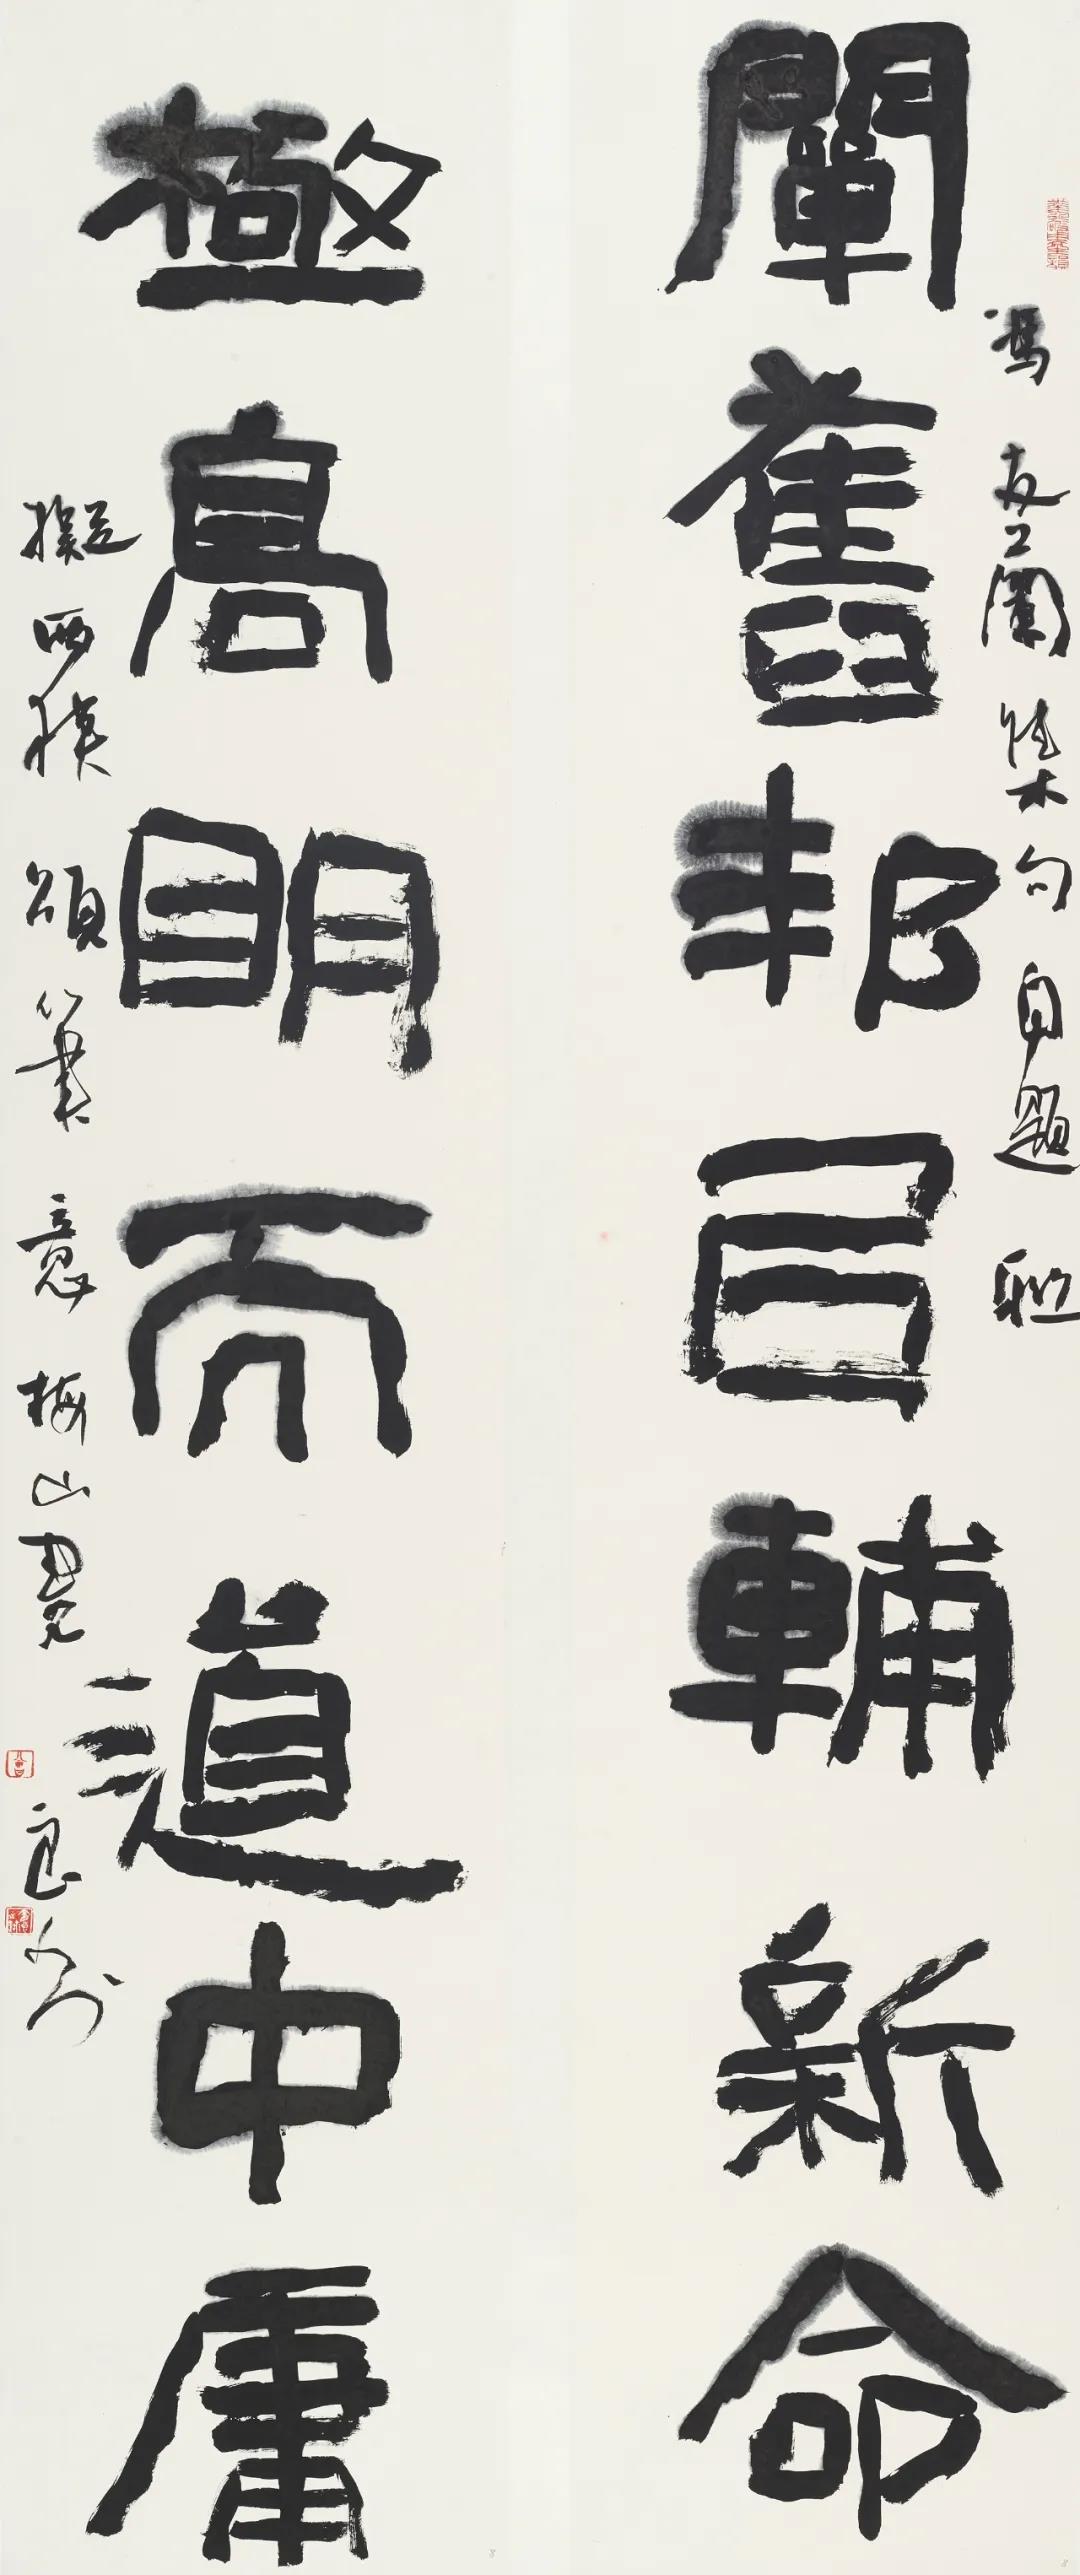 馮友蘭集句自題聯
闡舊邦以輔新命
極高明而道中庸
擬西狹頌筆意梅山